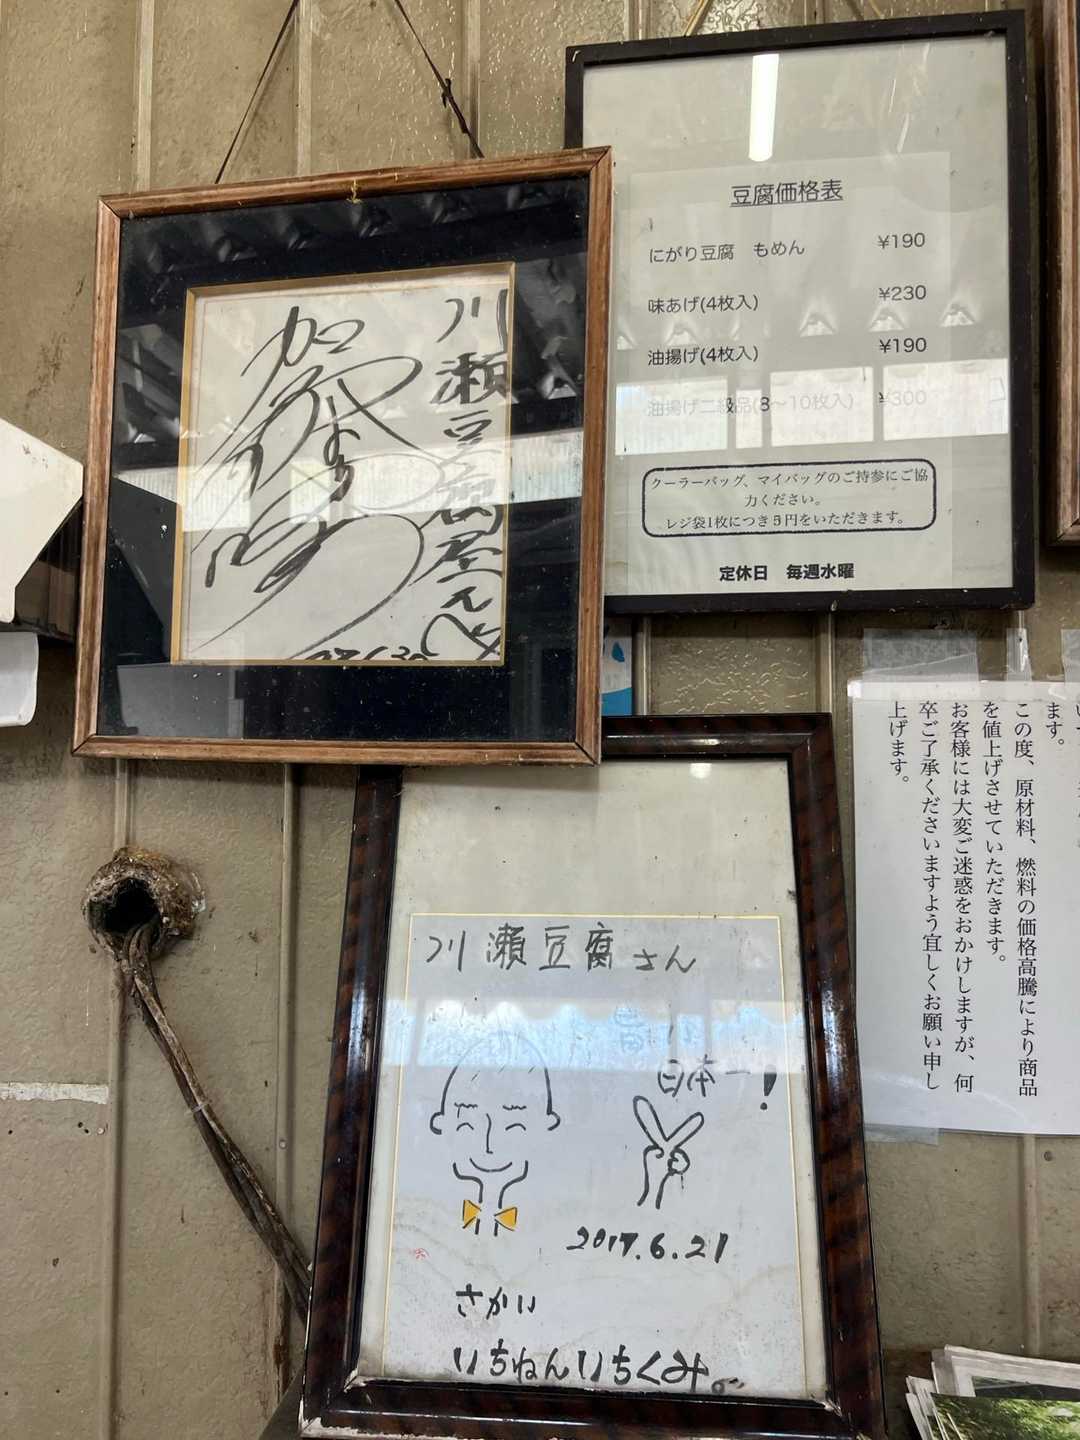 川瀬豆腐屋さん江
豆腐価格表
にがり豆腐 もめん ¥190
味あげ(4枚入) ¥230
油揚げ(4枚入) ¥190
油揚げ二級品(8〜10枚入) ¥300
クーラーバッグ、マイバッグのご持参にご協
力ください。
レジ袋1枚につき5円をいただきます。
定休日 毎週水曜
ます。
この度、原材料、燃料の価格高騰により商品
を値上げさせていただきます。
お客様には大変ご迷惑をおかけしますが、何
卒ご了承くださいますよう宜しくお願い申し
上げます。
川瀬豆腐さん
日本一!
2017.6.21
さかい
いちねんいちくみ。